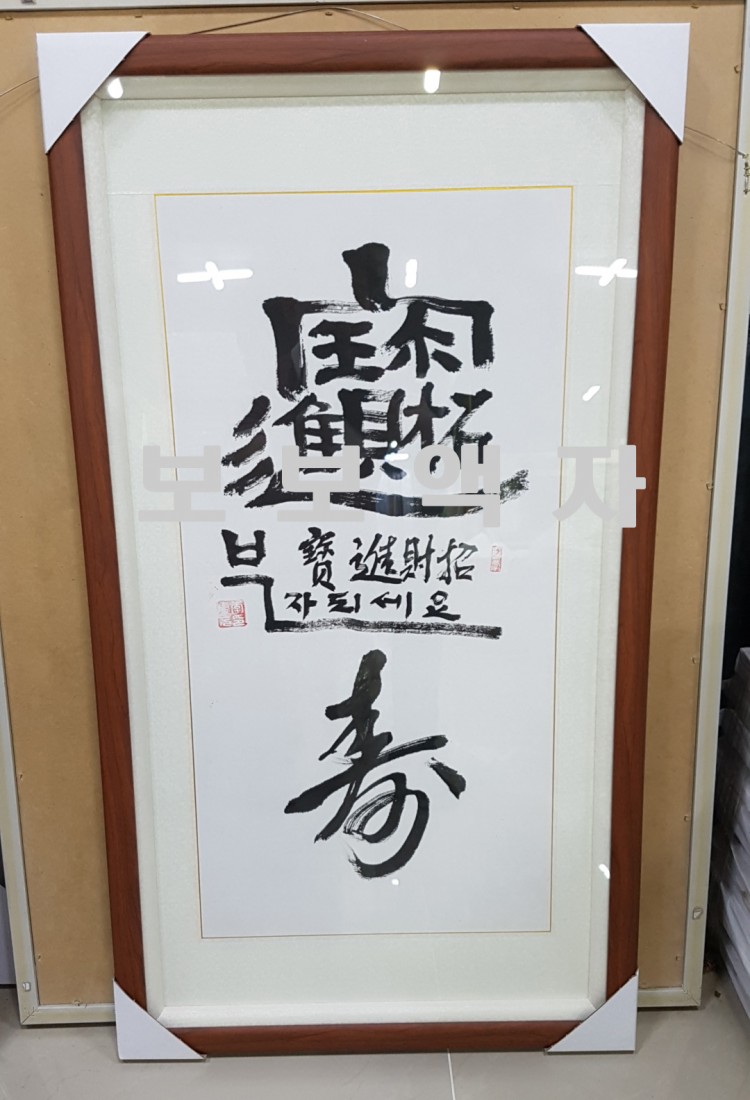 招財進寶
보보액자
招財進寶
부자되세요
寿